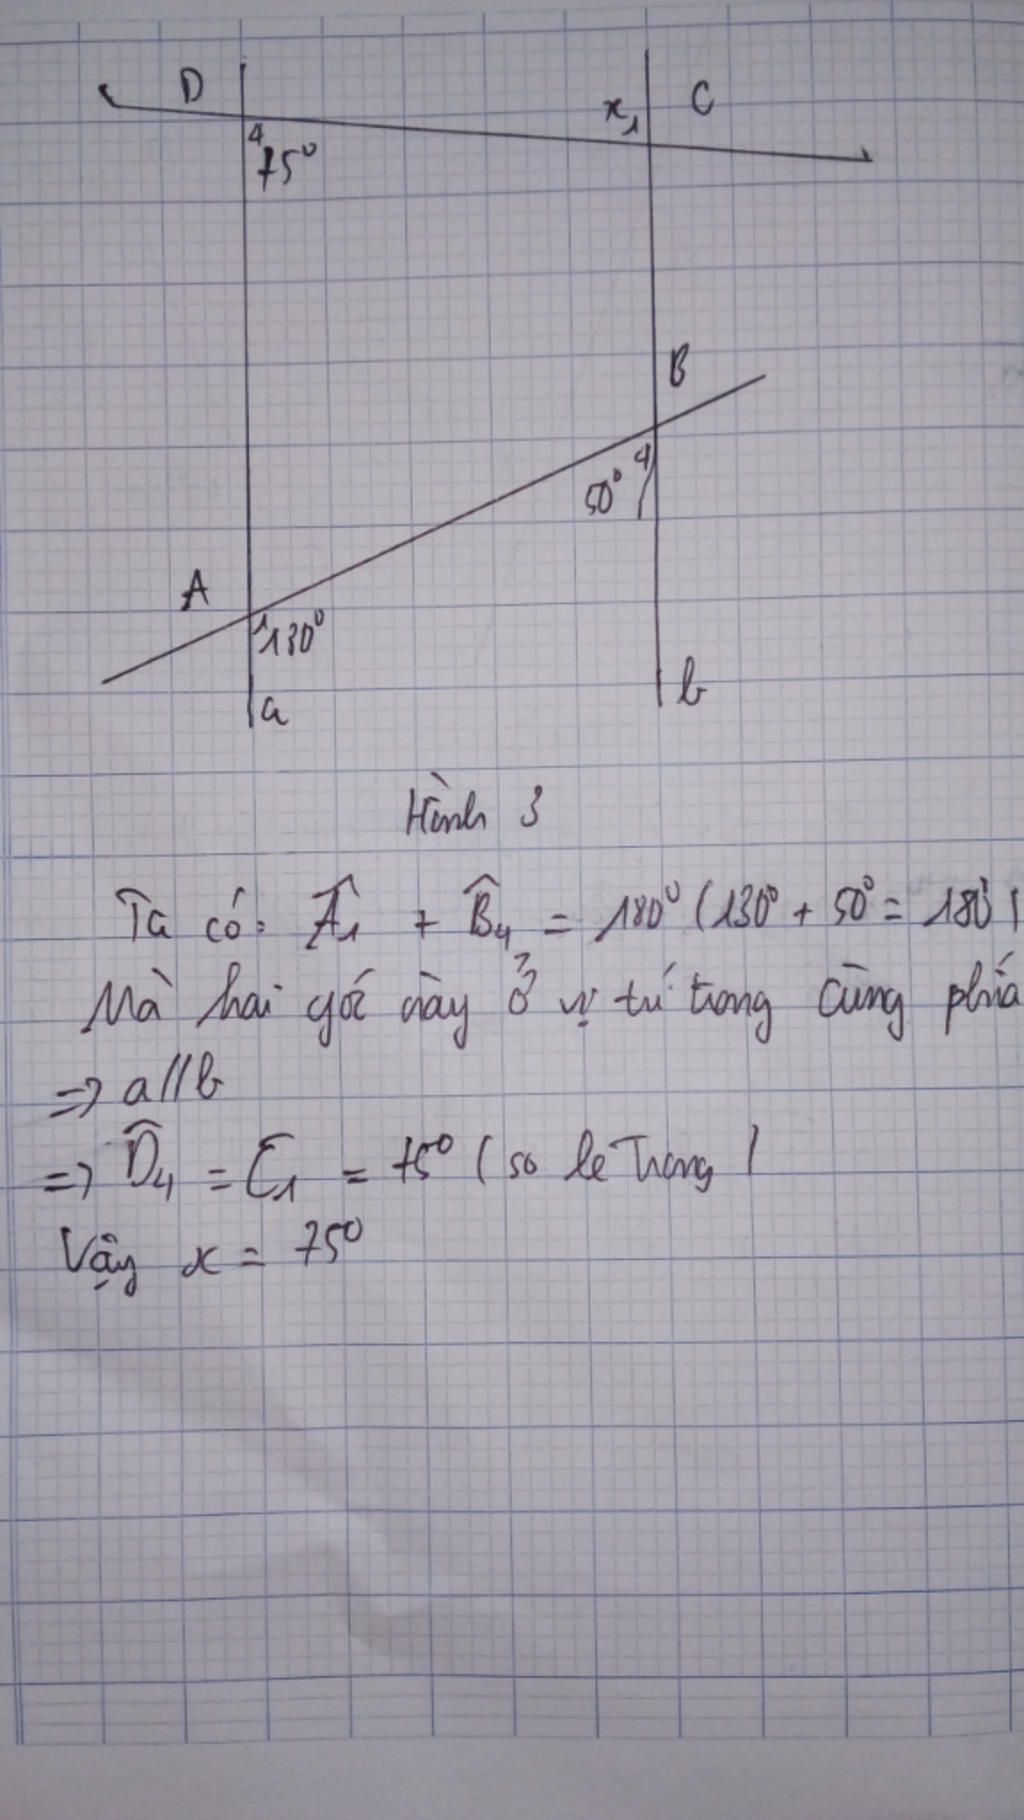 D
x₁
C
4
75⁰
B
4
50⁰
A
1
130⁰
a
b
Hình 3
Ta có: Â₁ + B̂₄ = 180⁰ (130⁰ + 50⁰ = 180⁰)
Mà hai góc này ở vị trí trong cùng phía
=> a//b
=> D̂₄ = Ĉ₁ = 75⁰ (so le trong)
Vậy x = 75⁰